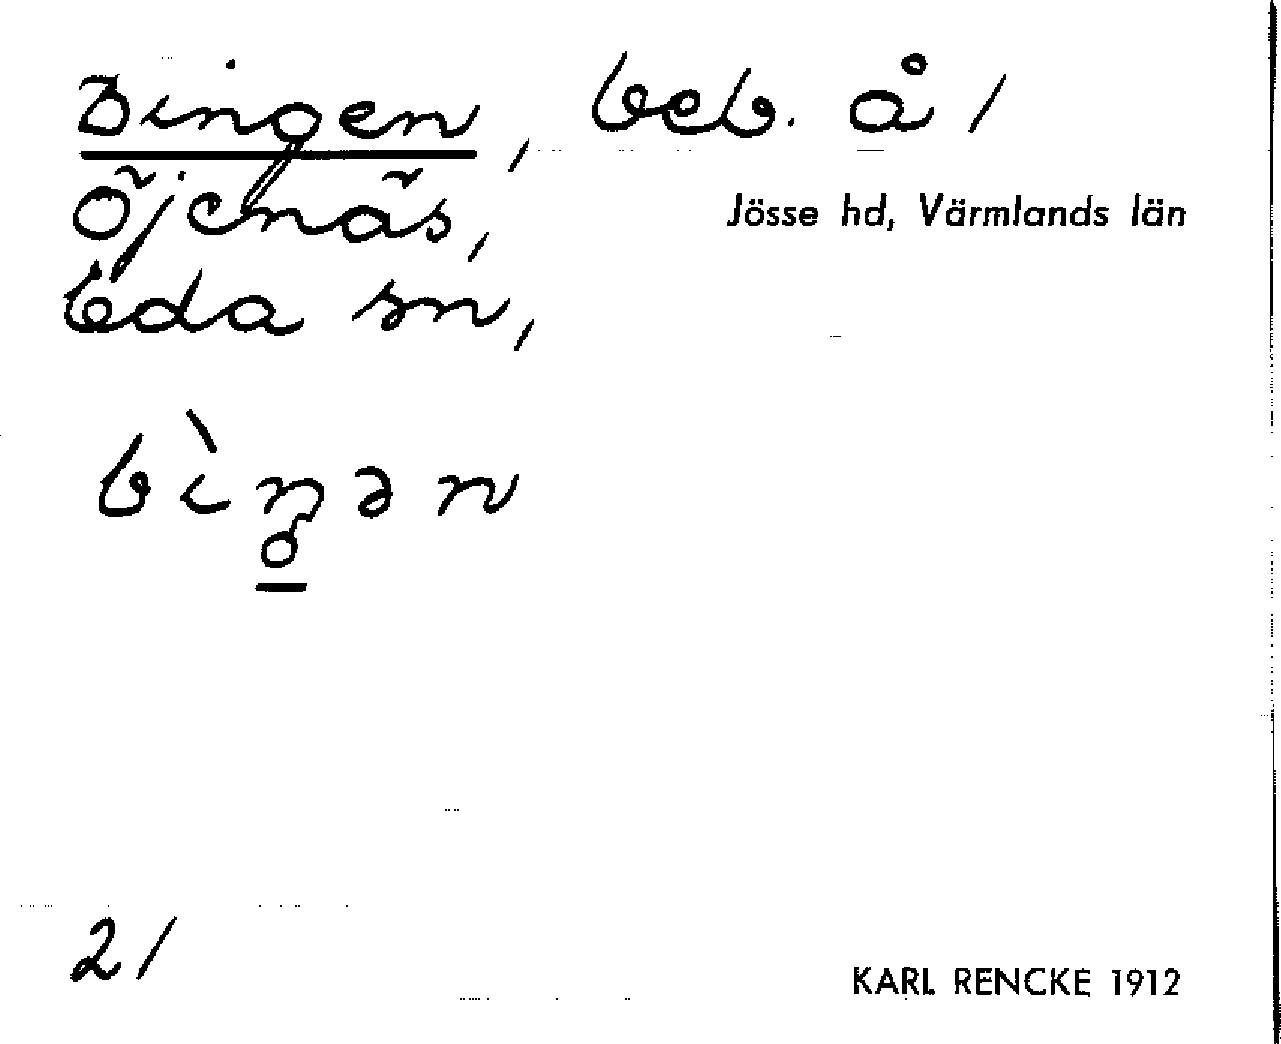 Bingen, beb. å /
Öjenäs,
Jösse hd, Värmlands län
Eda sn,
bìŋən
21
KARL RENCKE 1912